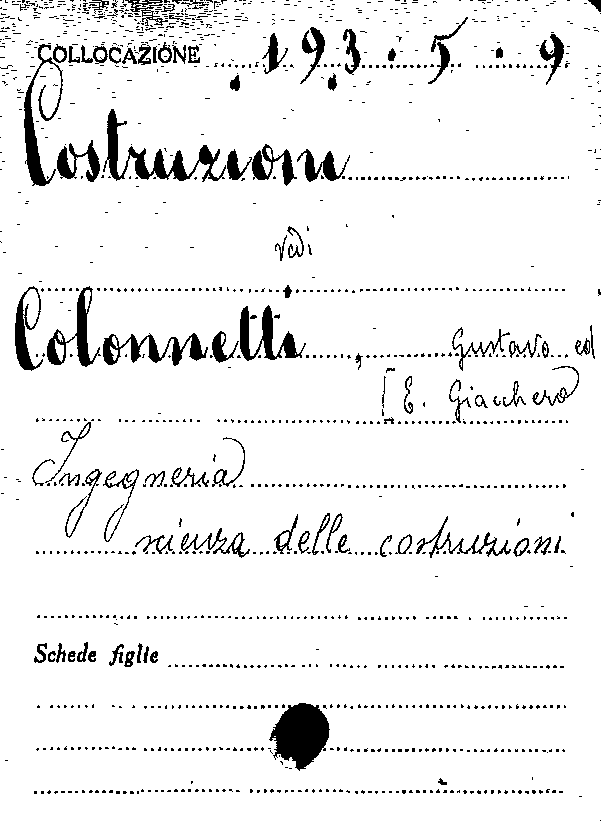 COLLOCAZIONE 193.5.9
Costruzioni
vedi
Colonnetti, Gustavo ed
[E. Giacchero
Ingegneria
scienza delle costruzioni
Schede figlie